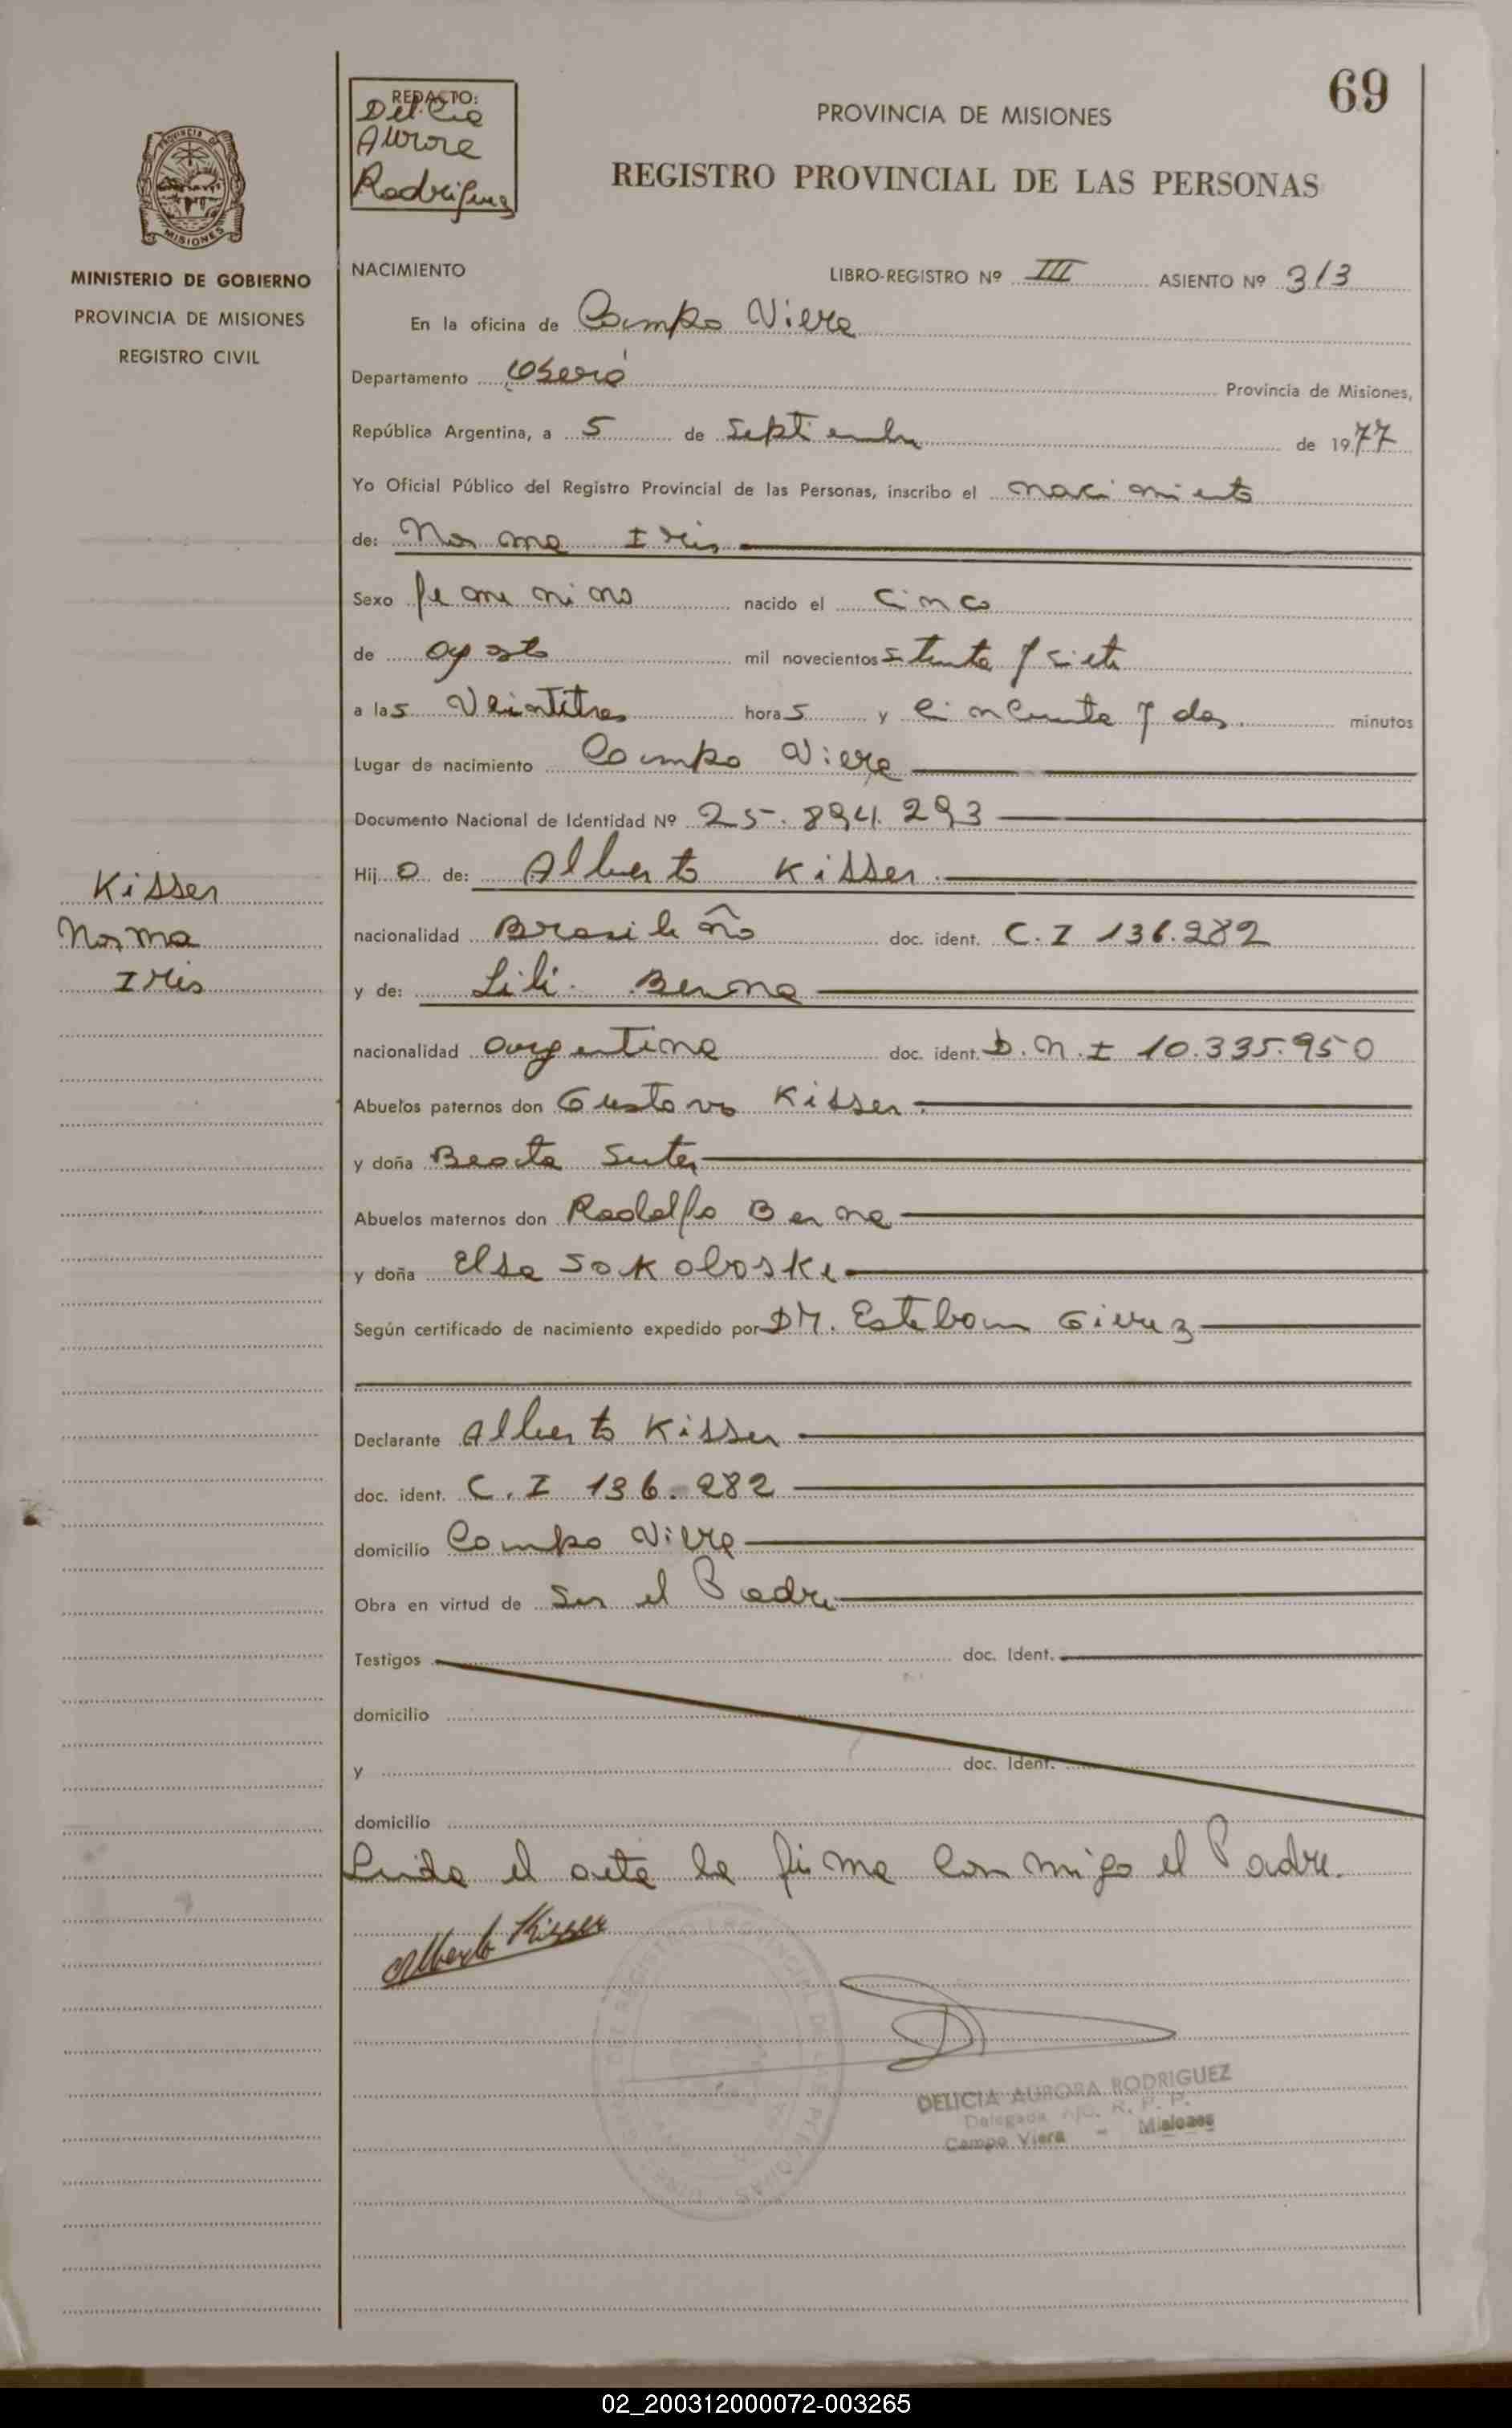 69
REDACTO:
Delicia
Aurora
Rodriguez
PROVINCIA DE MISIONES
REGISTRO PROVINCIAL DE LAS PERSONAS
MISIONES
MINISTERIO DE GOBIERNO
PROVINCIA DE MISIONES
REGISTRO CIVIL
NACIMIENTO LIBRO-REGISTRO Nº III ASIENTO Nº 313
En la oficina de Campo Viera
Departamento Oberá Provincia de Misiones,
República Argentina, a 5 de Septiembre de 1977
Yo Oficial Público del Registro Provincial de las Personas, inscribo el nacimiento
de: Norma Iris
Sexo femenino nacido el cinco
de agosto mil novecientos setenta y siete
a las veintitres horas y cincuenta y dos minutos
Lugar de nacimiento Campo Viera
Documento Nacional de Identidad Nº 25.894.293
Hija de: Alberto Kisser
nacionalidad Brasileño doc. ident. C.I 136.282
y de: Lili Berna
nacionalidad argentina doc. ident. D.N.I 10.335.950
Abuelos paternos don Gustavo Kisser
y doña Beata Suter
Abuelos maternos don Rodolfo Berna
y doña Elsa Sokoloski
Según certificado de nacimiento expedido por DR. Esteban
Declarante Alberto Kisser
doc. ident. C.I 136.282
domicilio Campo Viera
Obra en virtud de Ser el Padre
Testigos doc. Ident.
domicilio
y doc. Ident.
domicilio
Leida el acta la firma conmigo el Padre.
Alberto Kisser
DELICIA AURORA RODRIGUEZ
Delegada R. P. P.
Campo Viera - Misiones
Kisser
Norma
Iris
02_200312000072-003265